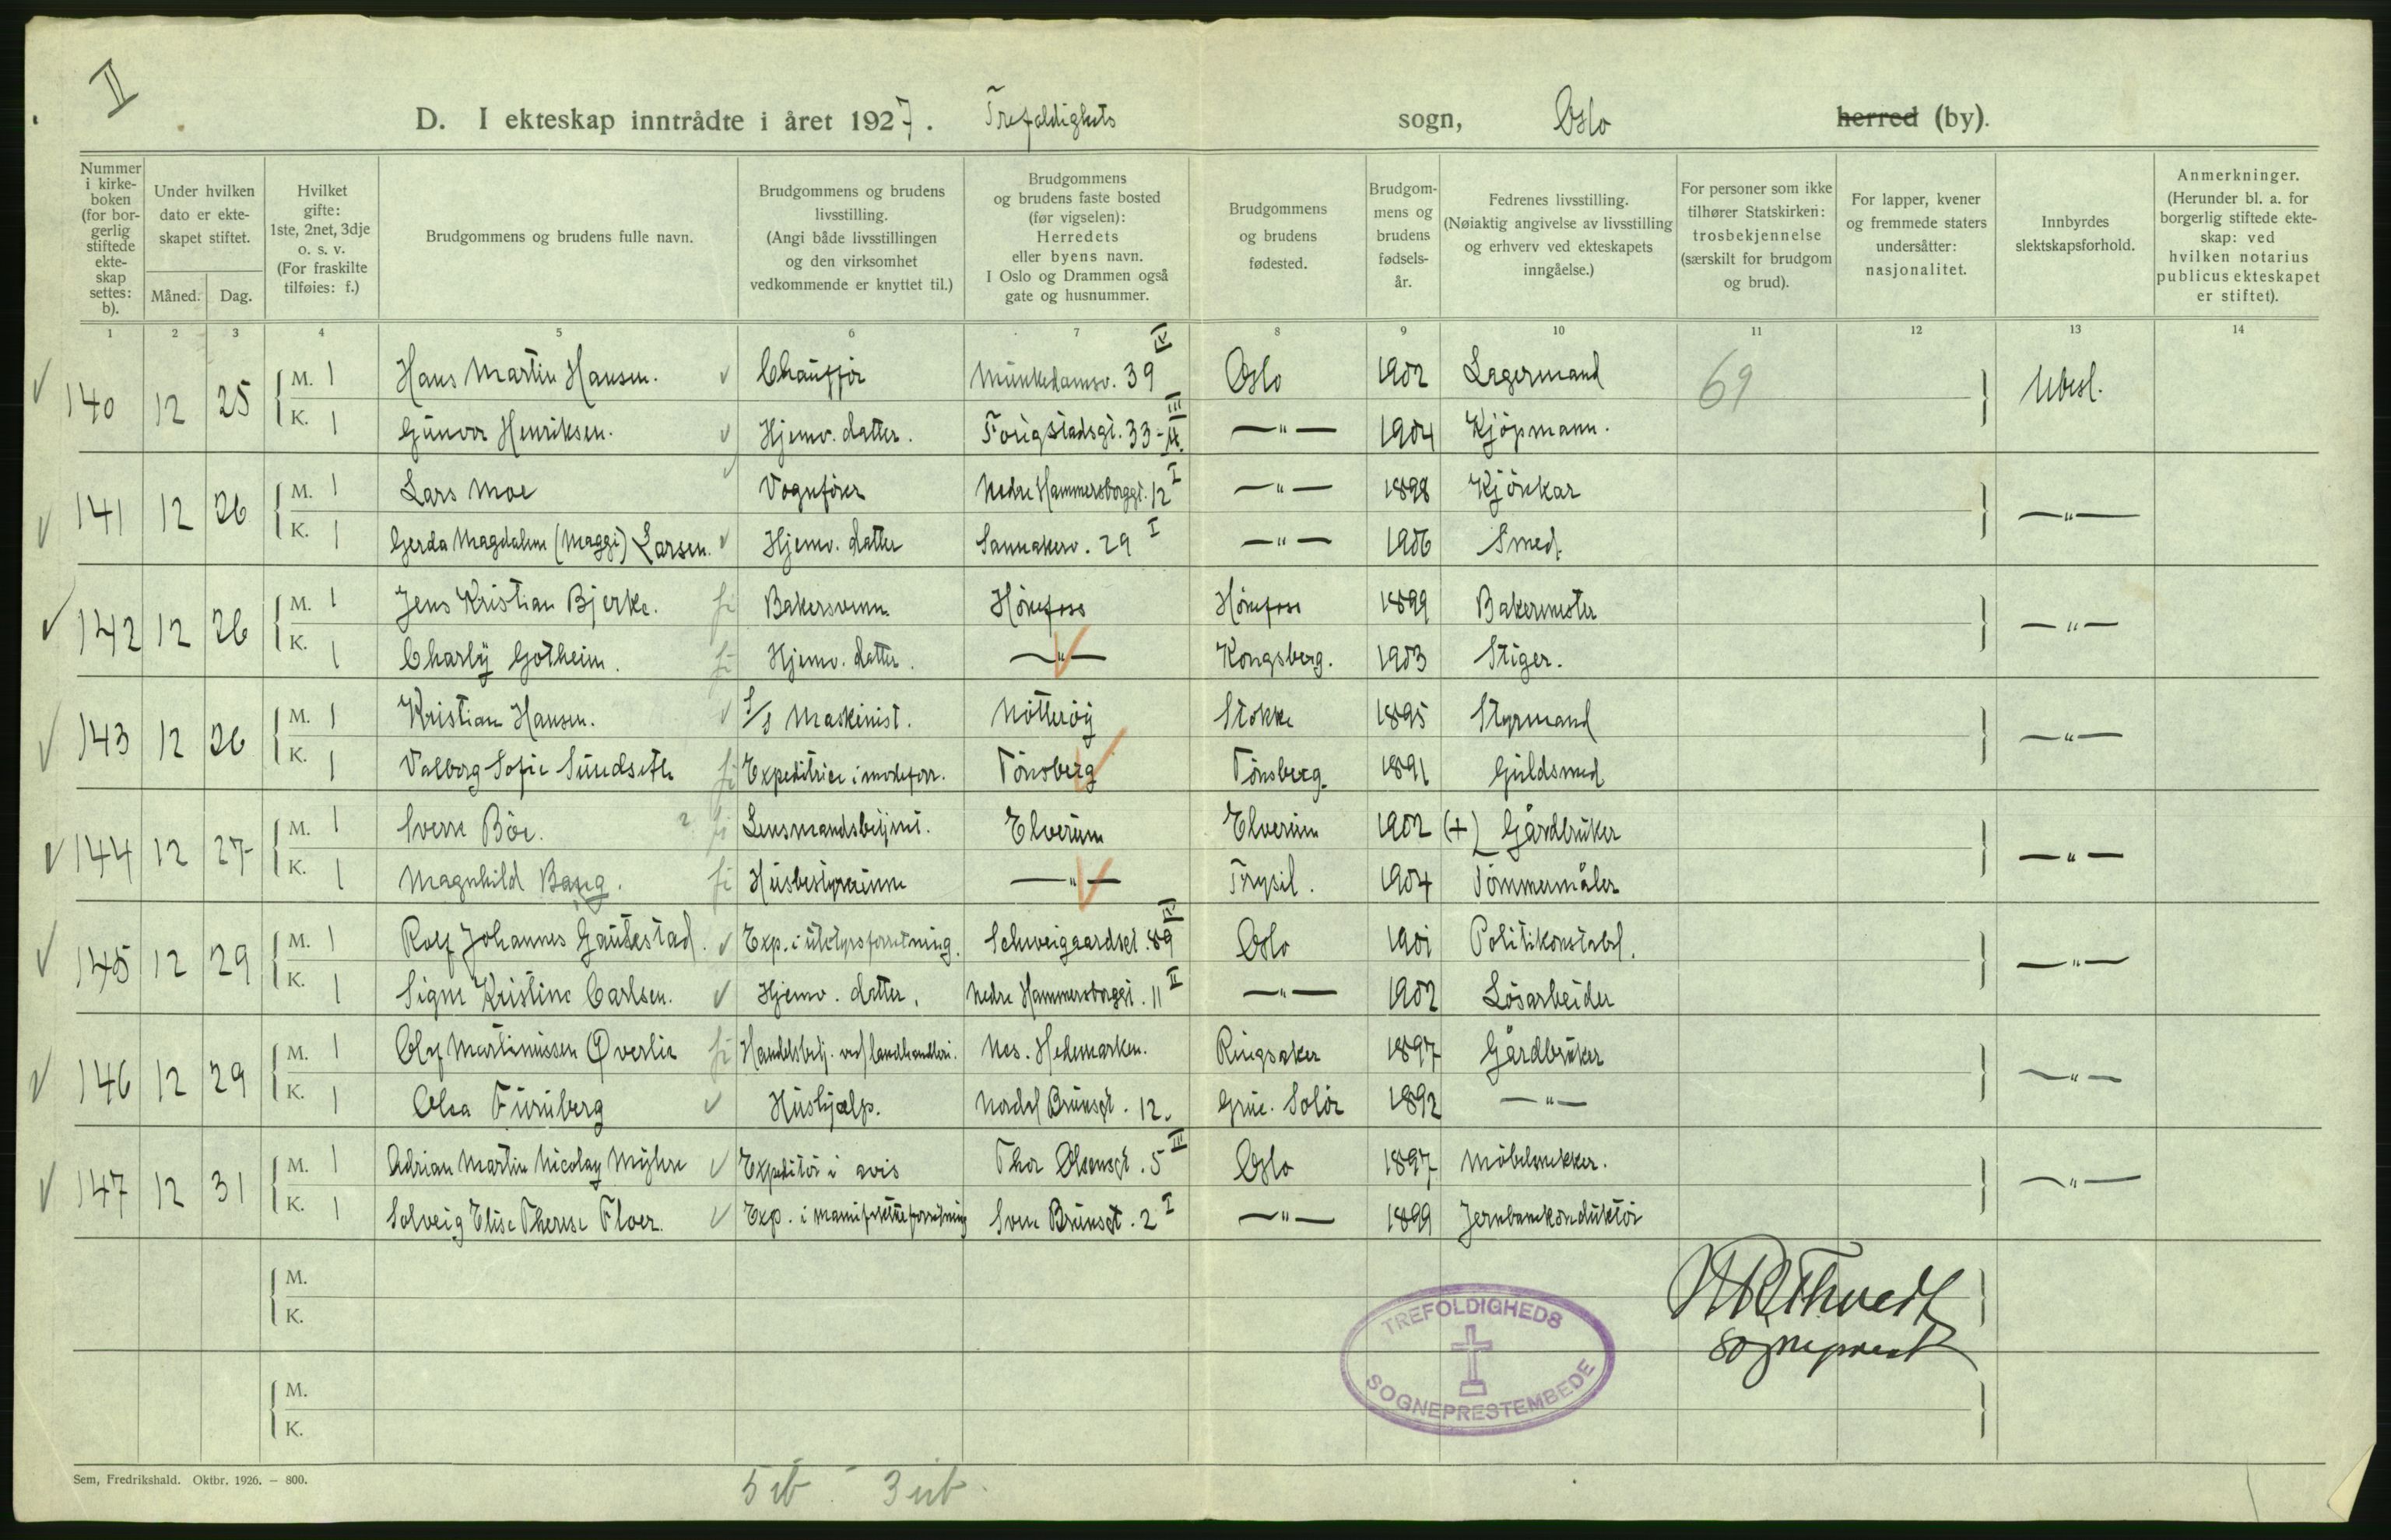 II
D. I ekteskap inntrådte i året 1927. Trefoldighets sogn, Oslo herred (by).
Nummer i kirkeboken (for borgerlig stiftede ekteskap settes: b).
Under hvilken dato er ekteskapet stiftet.
Måned. Dag.
Hvilket gifte: 1ste, 2net, 3dje o. s. v. (For fraskilte tilføies: f.)
Brudgommens og brudens fulle navn.
Brudgommens og brudens livsstilling. (Angi både livsstillingen og den virksomhet vedkommende er knyttet til.)
Brudgommens og brudens faste bosted (før vigselen): Herredets eller byens navn. I Oslo og Drammen også gate og husnummer.
Brudgommens og brudens fødested.
Brudgommens og brudens fødselsår.
Fedrenes livsstilling. (Nøiaktig angivelse av livsstilling og erhverv ved ekteskapets inngåelse.)
For personer som ikke tilhører Statskirken: trosbekjennelse (særskilt for brudgom og brud).
For lapper, kvener og fremmede staters undersåtter: nasjonalitet.
Innbyrdes slektskapsforhold.
Anmerkninger. (Herunder bl. a. for borgerlig stiftede ekteskap: ved hvilken notarius publicus ekteskapet er stiftet).
1 2 3 4 5 6 7 8 9 10 11 12 13 14
140 12 25 M. 1 Hans Martin Hansen. Chauffør Munkedamsv. 39 IV Oslo 1902 Lagermand 69 Ubesl.
K. 1 Gunvor Henriksen. Hjemv. datter. 33 III —"— 1904 Kjöpmann.
141 12 26 M. 1 Lars Moe Vognfører Nedre Hammersborggt. 12 I —"— 1898 Kjörekar —"—
K. 1 Gerda Magdalene (Maggi) Larsen. Hjemv. datter Sannakerv. 29 I —"— 1906 Smed.
142 12 26 M. 1 Jens Kristian Bjerke. Bakersvenn Hönefoss Hönefoss 1899 Bakermester —"—
K. 1 Charly Gotheim. Hjemv. datter. —"— Kongsberg. 1903 Stiger.
143 12 26 M. 1 Kristian Hansen. S/S Maskinist. Nötteröy Stokke 1895 Styrmand —"—
K. 1 Valborg Sofie Expeditrice i modeforr. Tönsberg Tönsberg. 1891 Guldsmed
144 12 27 M. 1 Sverre Böe. Lensmandsbetjent. Elverum Elverum 1902 (+) Gårdbruker —"—
K. 1 Magnhild Bang. Husbestyrerinne —"— Trysil. 1904 Tömmermåler
145 12 29 M. 1 Rolf Johannes Gautestad. Exp. i utstyrsforretning. Schweigaardsgt. 89 IV Oslo 1901 Politikonstabel. —"—
K. 1 Signe Kristine Carlsen. Hjemv. datter. Nedre Hammersborggt. 11 II —"— 1902 Lösarbeider
146 12 29 M. 1 Olaf Martinussen Øverlie Handelsbetj. ved landhandleri. Nes. Hedemarken. Ringsaker 1897 Gårdbruker —"—
K. 1 Olea Furuberg Hushjælp. Nordal Brunsgt. 12. Grue. Solör 1892 —"—
147 12 31 M. 1 Adrian Martin Nicolay Myhre Expeditör i avis Thor Olsensgt. 5 III Oslo 1897 Möbelsnekker. —"—
K. 1 Solveig Elise Therese Floer. Exp. i manufakturforretning Sven Brunsgt. 2 I —"— 1899 Jernbanekonduktör
M.
K.
M.
K.
TREFOLDIGHEDS
SOGNEPRESTEMBEDE
Sogneprest
Sem, Fredrikshald. Oktbr. 1926. — 800.
5 ib 3 ub